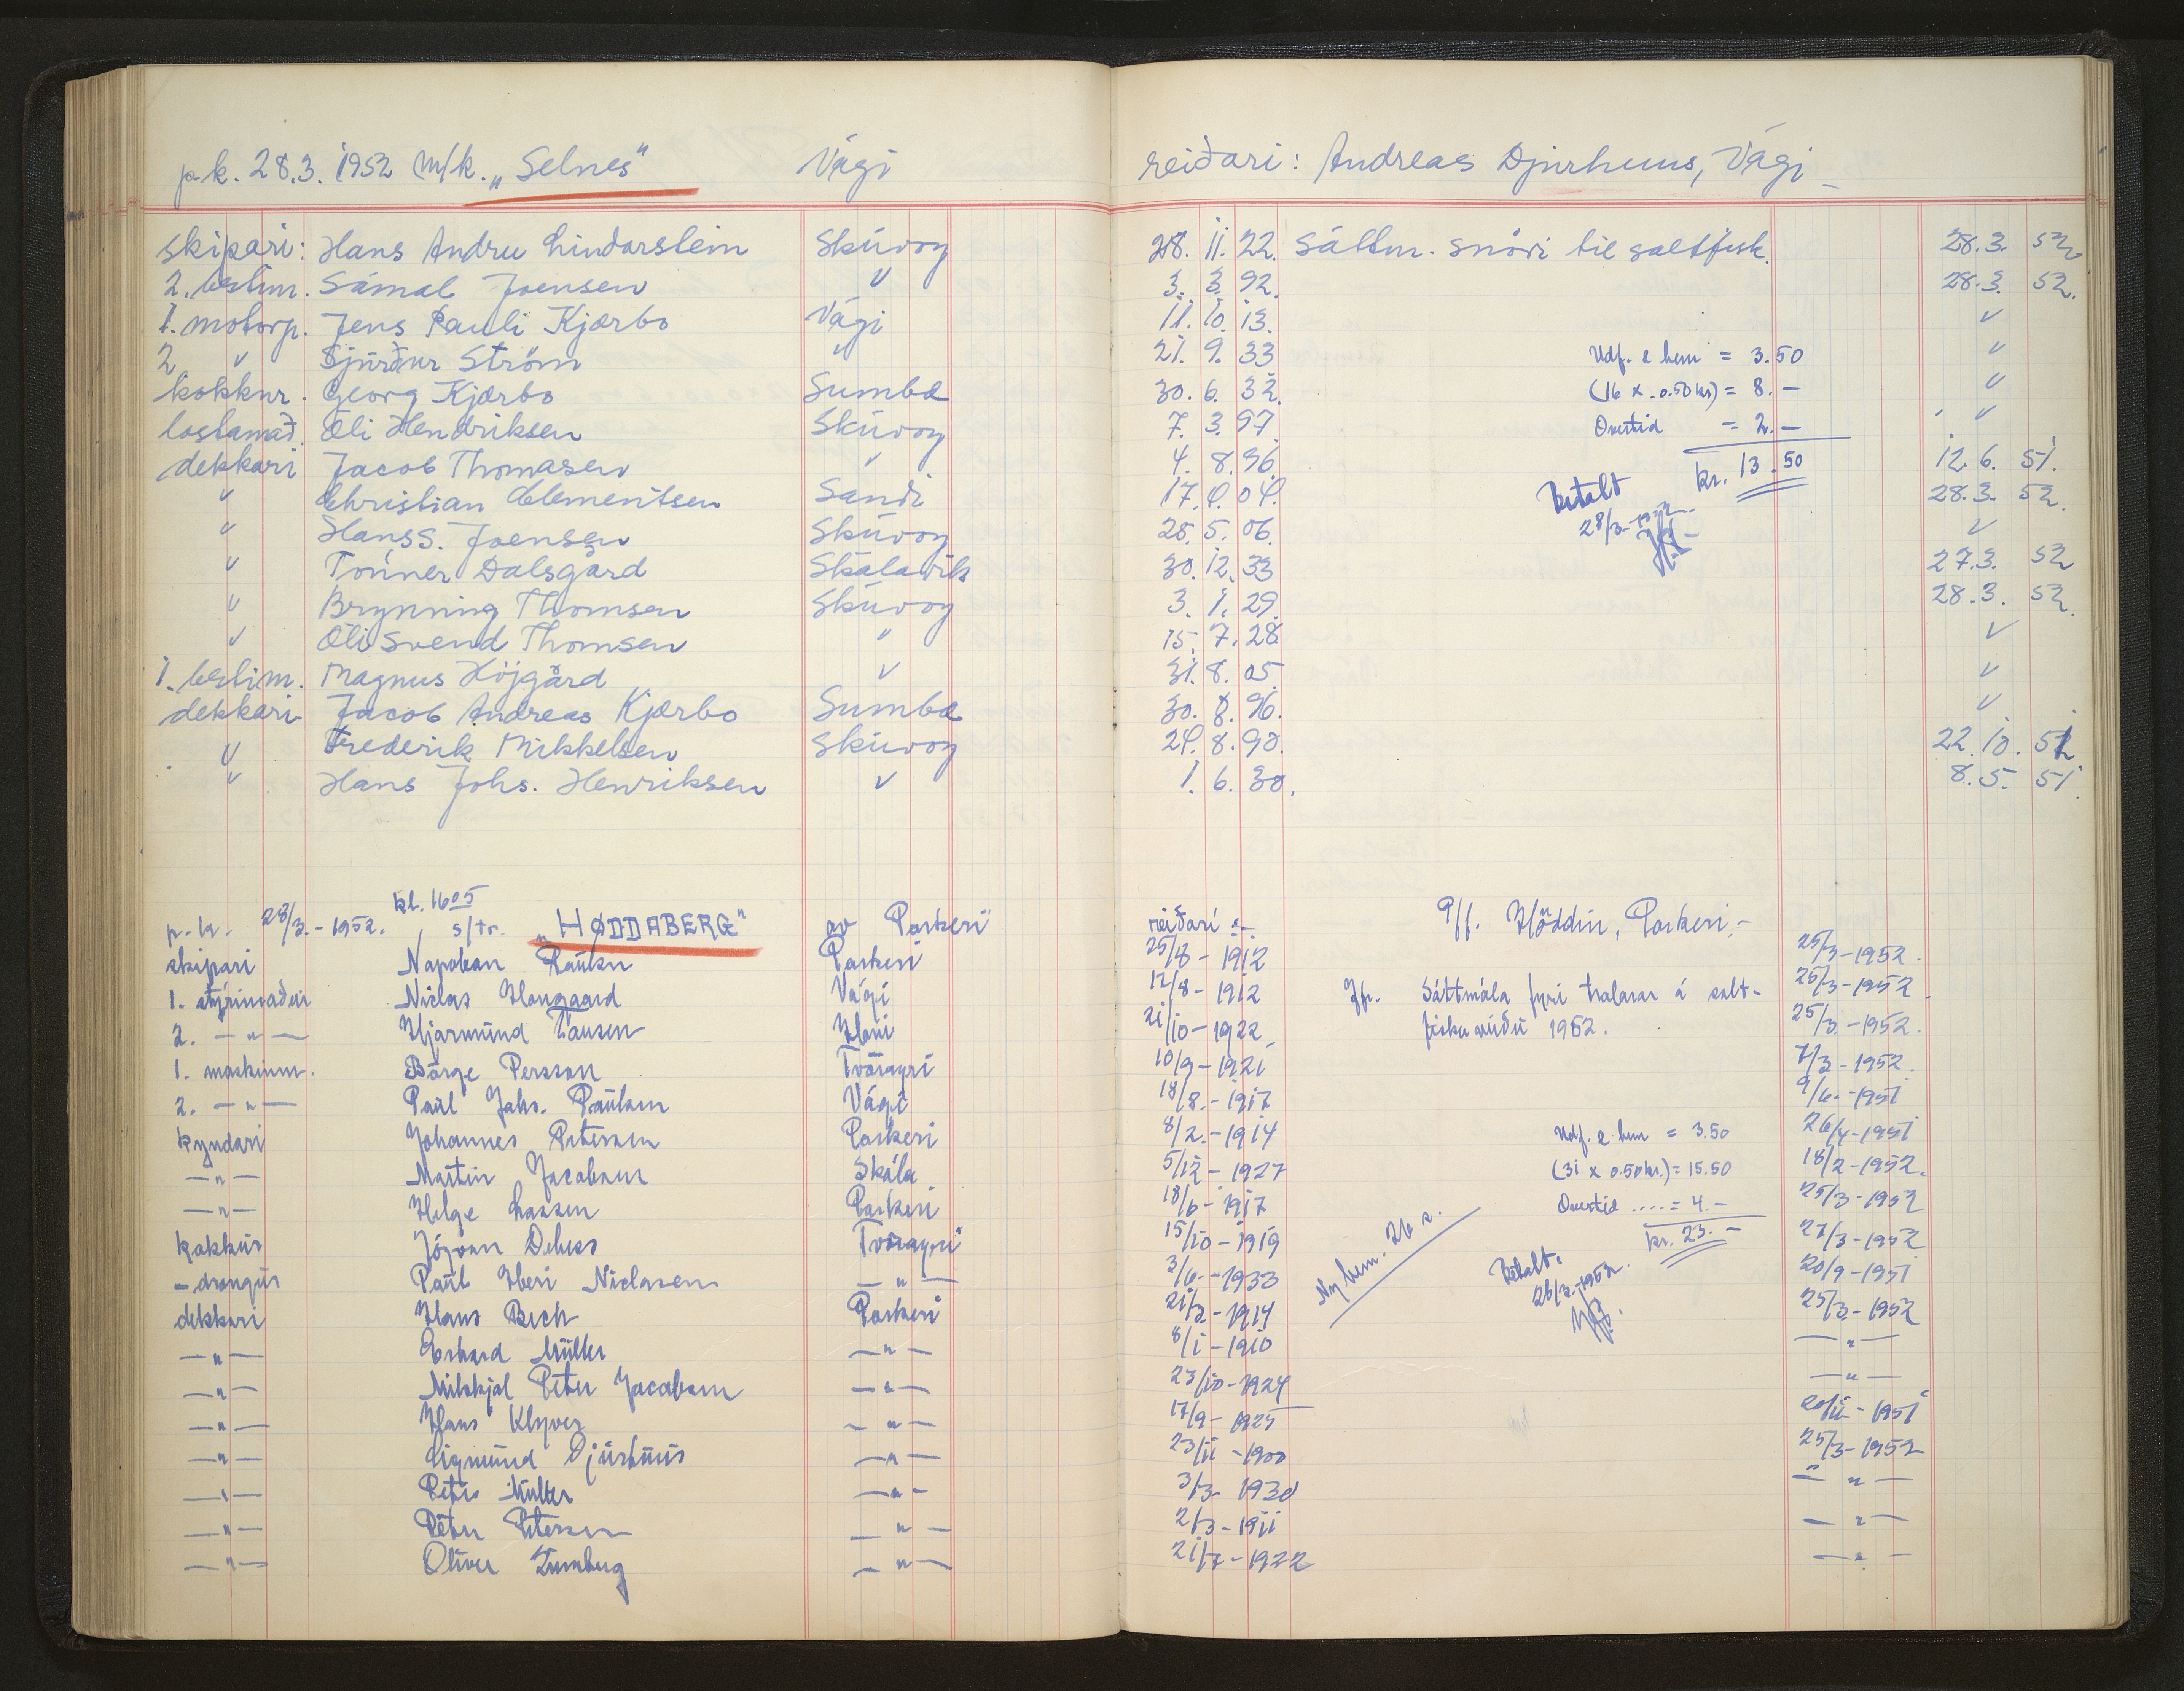 p.k. 28.3. 1952 m/k. „Selnes" Vági reiðari: Andreas Djurhuus, Vági
skipari: Hans Andrew Lindarstein Skúvoy 28. 11. 22. Sáttm. snøri til saltfisk. 28.3. 52
2. bestim. Sámal Joensen Skúvoy " 3. 3. 92. 28.3. 52.
1. motorp. Jens Pauli Kjærbo Vági 11. 10. 13. "
2 " Sjúrður Strøm " 21. 9. 33 Udf. e hem = 3.50 "
kokkur. Georg Kjærbo Sumba 30. 6. 32. (16 x 0.50 kr) = 8.— "
lastamað. Óli Hendriksen Skúvoy 7. 3. 97. Overtid = 2.— "
dekkari Jacob Thomasen " 4. 8. 96. kr. 13.50 12. 6. 51.
" Christian Clementsen Sandi 17. 4. 04. Betalt 28.3. 52.
" Hans S. Joensen Skúvoy 28. 5. 06. 28/3-1952 "
" Tónner Dalsgård Skálavík 30. 12. 33 27.3. 52
" Brynning Thomsen Skúvoy 3. 1. 29. 28.3. 52.
" Óli Svend Thomsen " 15. 7. 28. "
1. bestim. Magnus Højgård " 31. 8. 05. "
dekkari Jacob Andreas Kjærbo Sumba 30. 8. 96. "
" Frederik Mikkelsen Skúvoy 24. 8. 90. 22. 10. 51.
" Hans Johs. Henriksen " 1. 6. 30. 8. 5. 51.
p.k. 28/3.-1952. kl. 1605 s/tr. „HØDDABERG" av Porkeri reiðari :- P/f. Høddin, Porkeri.-
skipari Napoleon Poulsen Porkeri 25/8 - 1912 25/3-1952.
1. stýrimaður Niclas Hovgaard Vági 12/8 - 1912 Jfr. Sáttmála fyri tralarar á salt- 25/3-1952.
2. — " — Hjarmund Hansen Hovi 21/10 - 1922 fiskaveiðu 1952. 25/3.-1952.
1. maskinm. Börge Persson Tvöroyri 10/9 - 1921 7/3-1952.
2. — " — Paul Johs. Poulsen Vági 18/8.-1917 9/6.-1951
kyndari Johannes Petersen Porkeri 8/2.-1914 Udf. e hem = 3.50 26/4-1951
— " — Martin Jacobsen Skála 5/12 - 1927 (31 x 0.50 kr.) = 15.50 18/2-1952.
— " — Helge Lassen Porkeri 18/6 - 1917 Overtid .... = 4.— 25/3-1952
kokkur Jógvan Debess Tvöroyri 15/10 - 1919 Ny hem. 26 s. kr. 23.— 27/3-1952
- drongur Paul Heri Niclasen — " — 3/6.-1933 Betalt. 20/9-1951
dekkari Hans Bech Porkeri 21/3.-1914 26/3.-1952. 25/3-1952
— " — Erhard Müller — " — 8/1 - 1910 — " —
— " — Mikkjal Peter Jacobsen — " — 23/10-1924 — " —
— " — Hans Klyver — " — 17/9 - 1925 20/11 - 1951
— " — Sigmund Djurhuus — " — 23/11 - 1900 25/3-1952
— " — Petur Müller — " — 3/3- 1930 — " —
— " — Peter Petersen — " — 2/3 - 1911 — " —
— " — Oliver Lumberg — " — 21/7 - 1922 — " —